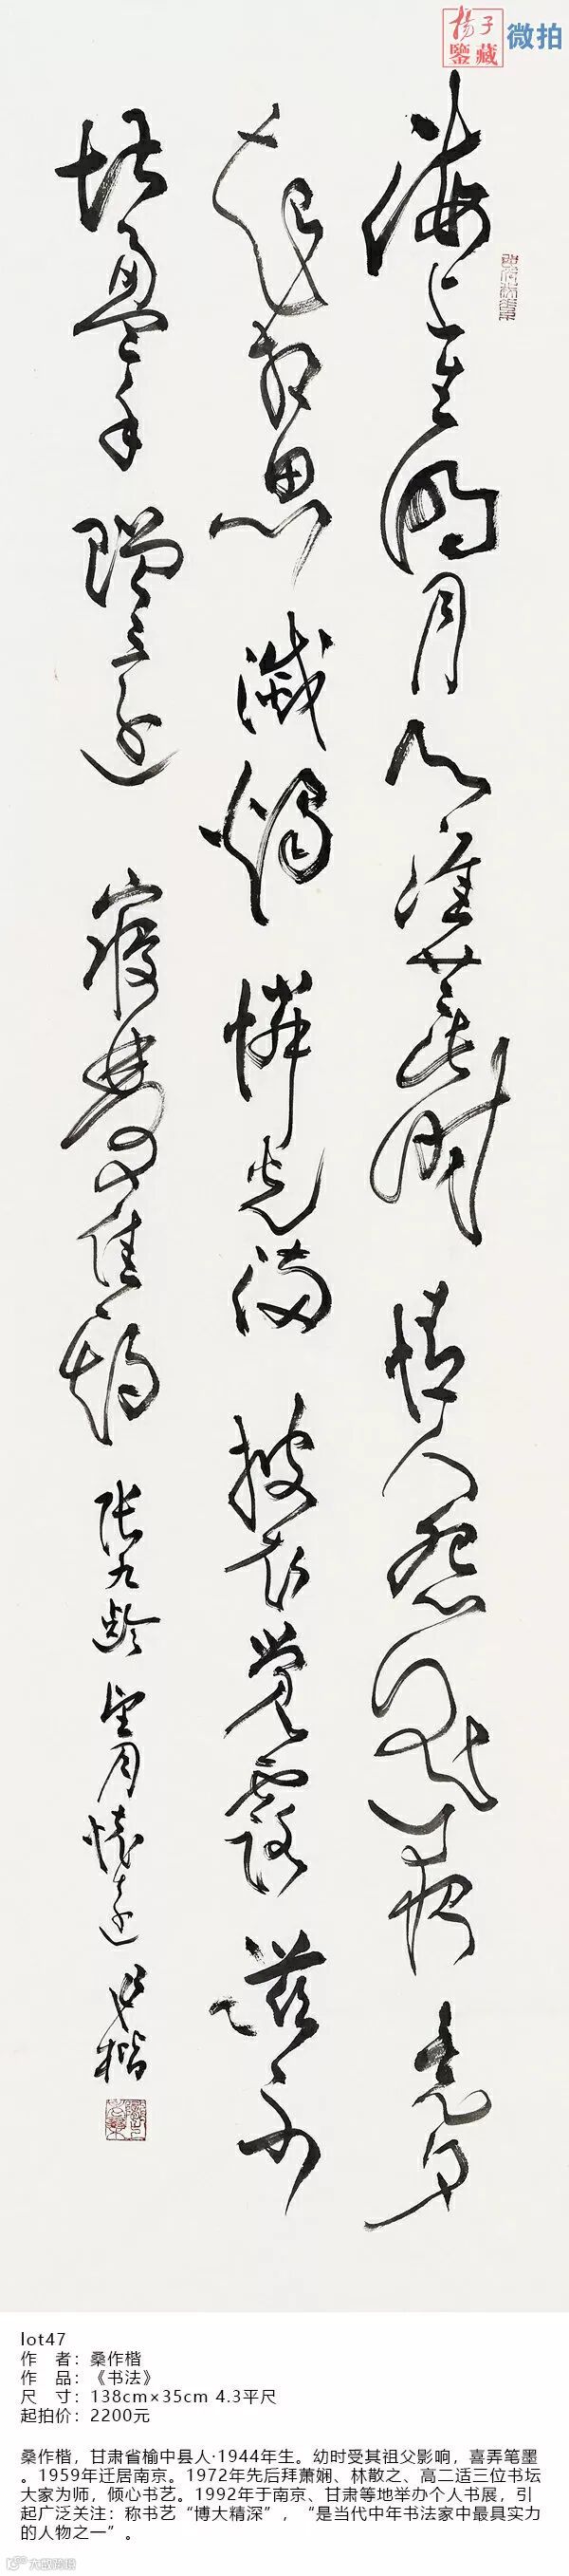 楊子
鑒藏
微拍
海上生明月天涯共此時情人怨遙夜竟夕
起相思滅燭憐光滿披衣覺露滋不
堪盈手贈還寢夢佳期張九齡望月懷遠作楷
lot47
作 者：桑作楷
作 品：《书法》
尺 寸：138cm×35cm 4.3平尺
起拍价：2200元
桑作楷，甘肃省榆中县人·1944年生。幼时受其祖父影响，喜弄笔墨
。1959年迁居南京。1972年先后拜萧娴、林散之、高二适三位书坛
大家为师，倾心书艺。1992年于南京、甘肃等地举办个人书展，引
起广泛关注：称书艺“博大精深”，“是当代中年书法家中最具实力
的人物之一”。